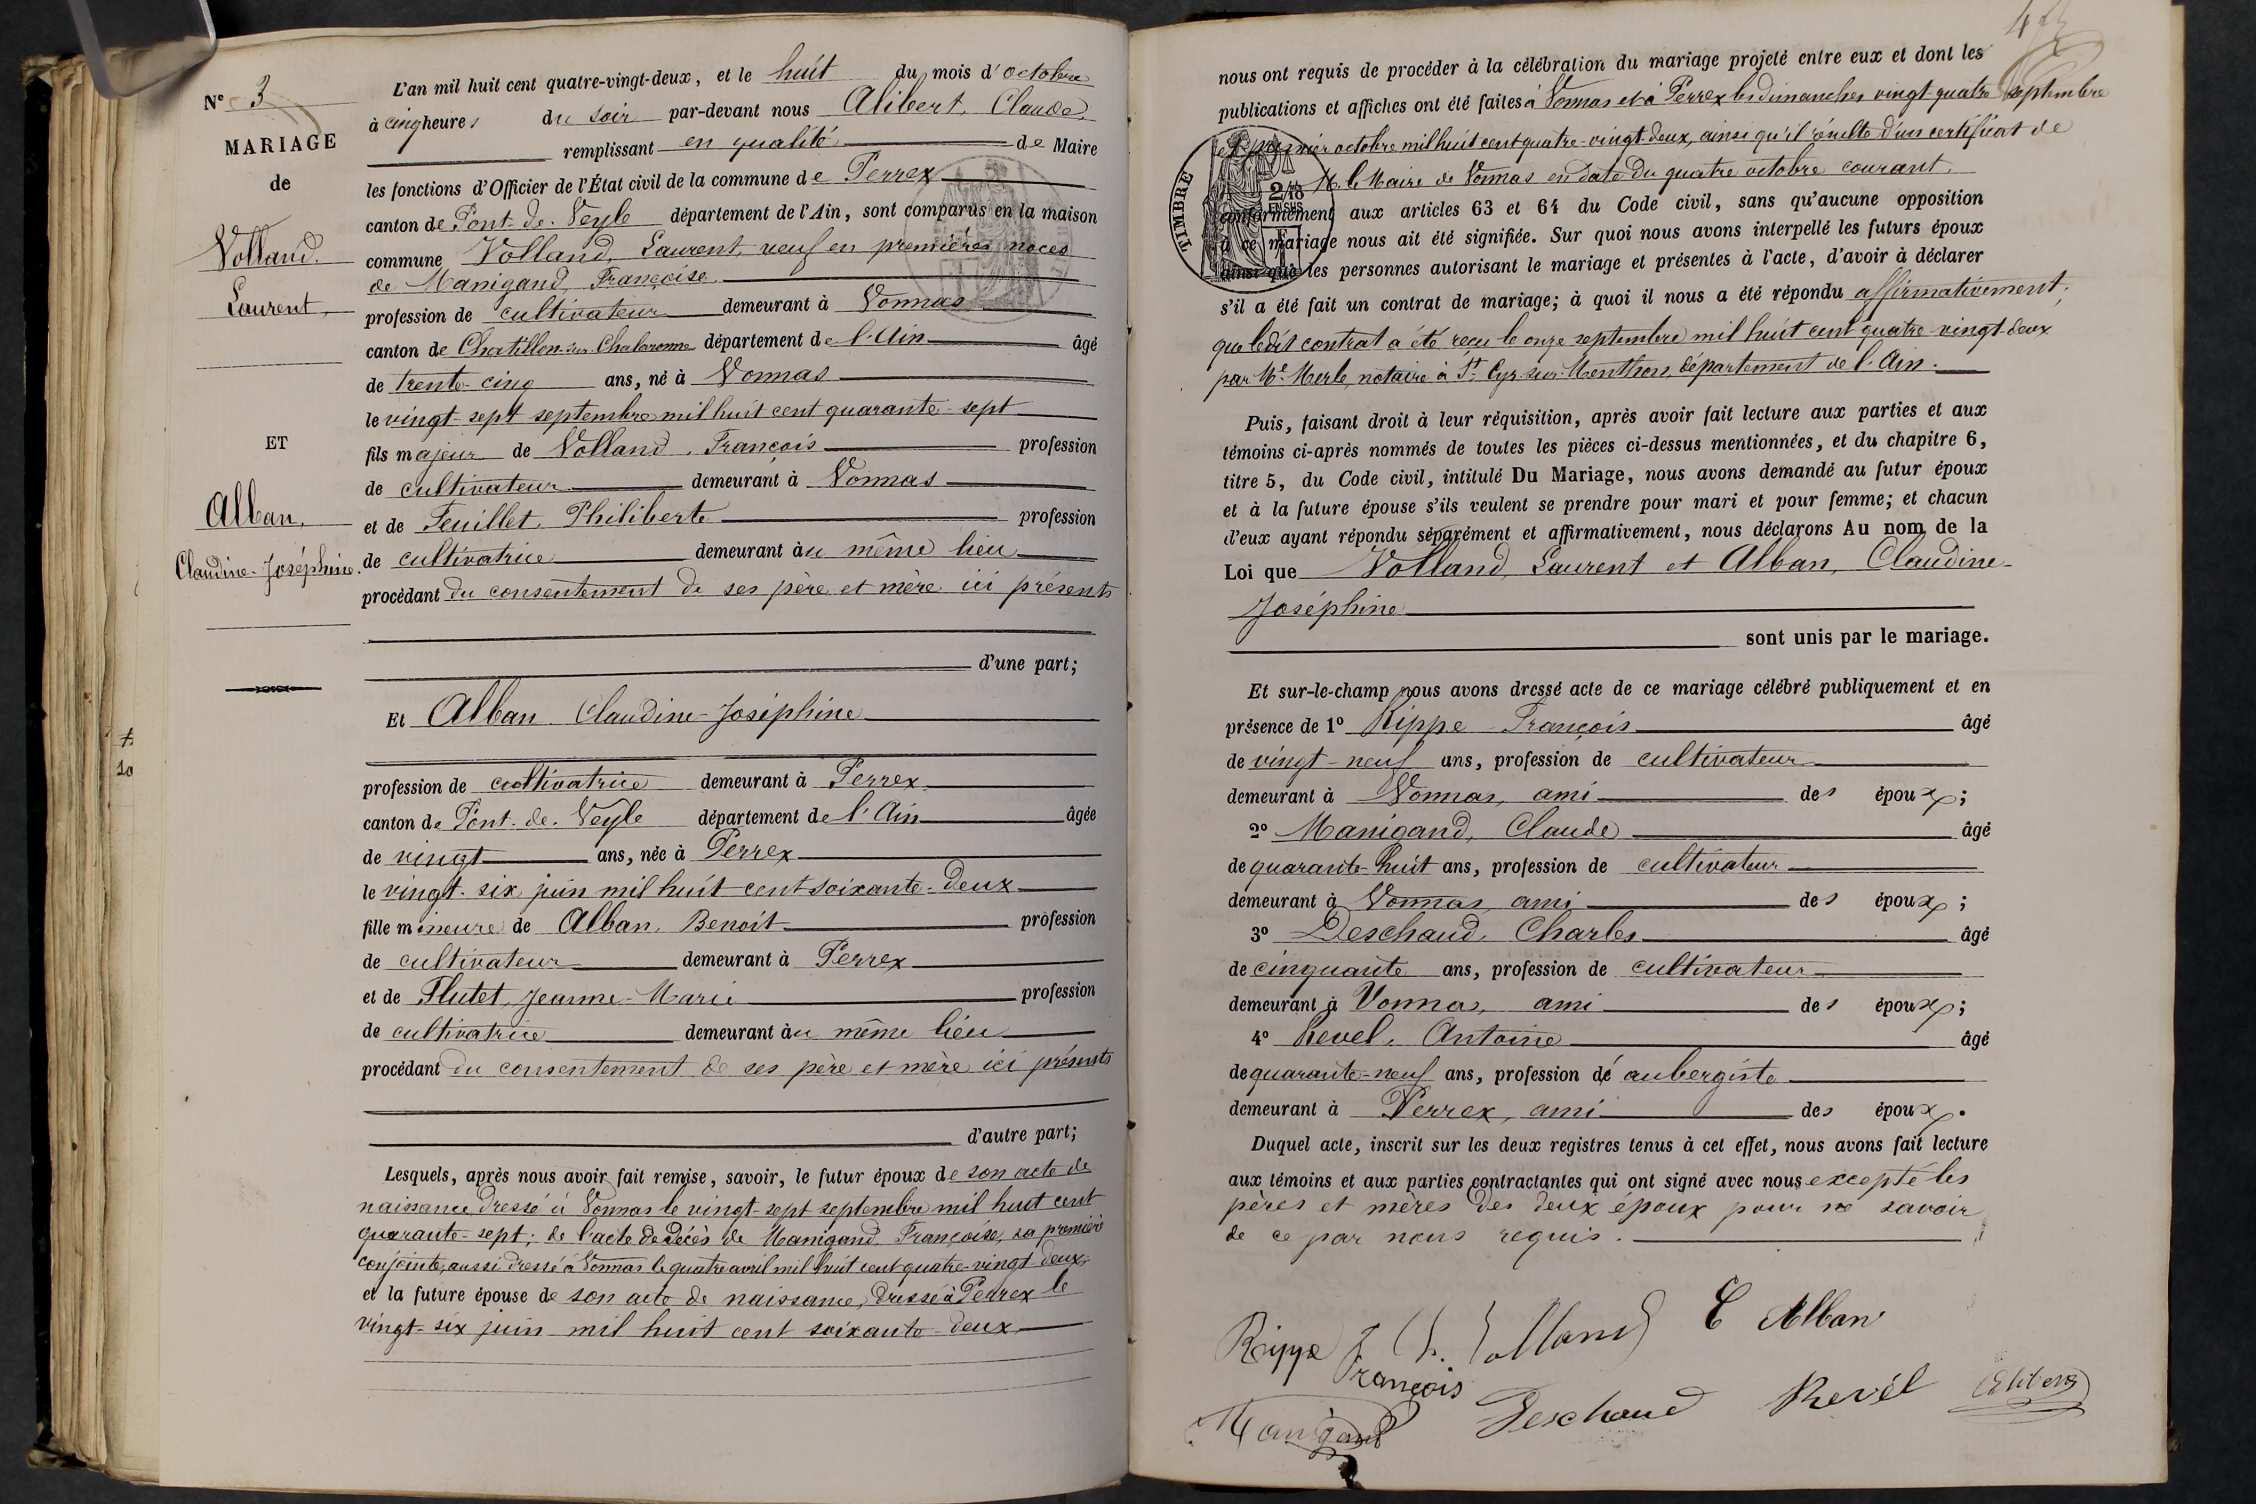 N° 3
MARIAGE
de
Volland
Laurent,
ET
Alban,
Claudine-Joséphine.
L'an mil huit cent quatre-vingt-deux, et le huit du mois d'octobre
à cinq heures du soir par-devant nous Alibert, Claude,
remplissant en qualité de Maire
les fonctions d'Officier de l'État civil de la commune de Perrex
canton de Pont-de-Veyle département de l'Ain, sont comparus en la maison
commune Volland, Laurent, veuf en premières noces
de Manigand, Françoise
profession de cultivateur demeurant à Vonnas
canton de Chatillon-sur-Chalaronne département de l'Ain âgé
de trente-cinq ans, né à Vonnas
le vingt-sept septembre mil huit cent quarante-sept
fils majeur de Volland, François profession
de cultivateur demeurant à Vonnas
et de Feuillet, Philiberte profession
de cultivatrice demeurant au même lieu
procédant du consentement de ses père et mère ici présents
d'une part;
Et Alban Claudine-Joséphine
profession de cultivatrice demeurant à Perrex
canton de Pont-de-Veyle département de l'Ain âgée
de vingt ans, née à Perrex
le vingt-six juin mil huit cent soixante-deux
fille mineure de Alban, Benoit profession
de cultivateur demeurant à Perrex
et de Flutet, Jeanne-Marie profession
de cultivatrice demeurant au même lieu
procédant du consentement de ses père et mère ici présents
d'autre part;
Lesquels, après nous avoir fait remise, savoir, le futur époux de son acte de
naissance dressé à Vonnas le vingt-sept septembre mil huit cent
quarante-sept; de l'acte de décès de Manigand Françoise, sa première
conjointe, aussi dressé à Vonnas le quatre avril mil huit cent quatre-vingt deux;
et la future épouse de son acte de naissance, dressé à Perrex le
vingt-six juin mil huit cent soixante-deux
nous ont requis de procéder à la célébration du mariage projeté entre eux et dont les
publications et affiches ont été faites à Vonnas et à Perrex les dimanches vingt quatre septembre
et premier octobre mil huit cent quatre-vingt-deux, ainsi qu'il résulte d'un certificat de
M. le Maire de Vonnas en date du quatre octobre courant,
TIMBRE
conformément aux articles 63 et 64 du Code civil, sans qu'aucune opposition
à ce mariage nous ait été signifiée. Sur quoi nous avons interpellé les futurs époux
ainsi que les personnes autorisant le mariage et présentes à l'acte, d'avoir à déclarer
s'il a été fait un contrat de mariage; à quoi il nous a été répondu affirmativement,
que ledit contrat a été reçu le onze septembre mil huit cent quatre-vingt-deux
par Me Merle, notaire à St Cyr-sur-Menthon, département de l'Ain.
Puis, faisant droit à leur réquisition, après avoir fait lecture aux parties et aux
témoins ci-après nommés de toutes les pièces ci-dessus mentionnées, et du chapitre 6,
titre 5, du Code civil, intitulé Du Mariage, nous avons demandé au futur époux
et à la future épouse s'ils veulent se prendre pour mari et pour femme; et chacun
d'eux ayant répondu séparément et affirmativement, nous déclarons Au nom de la
Loi que Volland, Laurent et Alban, Claudine-
Joséphine
sont unis par le mariage.
Et sur-le-champ nous avons dressé acte de ce mariage célébré publiquement et en
présence de 1° Rippe François âgé
de vingt-neuf ans, profession de cultivateur
demeurant à Vonnas, ami des époux;
2° Manigand, Claude âgé
de quarante-huit ans, profession de cultivateur
demeurant à Vonnas, ami des époux;
3° Deschaud, Charles âgé
de cinquante ans, profession de cultivateur
demeurant à Vonnas, ami des époux;
4° Revel, Antoine âgé
de quarante-neuf ans, profession d'aubergiste
demeurant à Perrex, ami des époux.
Duquel acte, inscrit sur les deux registres tenus à cet effet, nous avons fait lecture
aux témoins et aux parties contractantes qui ont signé avec nous excepté les
pères et mères des deux époux pour ne savoir
de ce par nous requis.
Rippe François L. Volland C Alban
Manigand Deschaud Revel Alibert